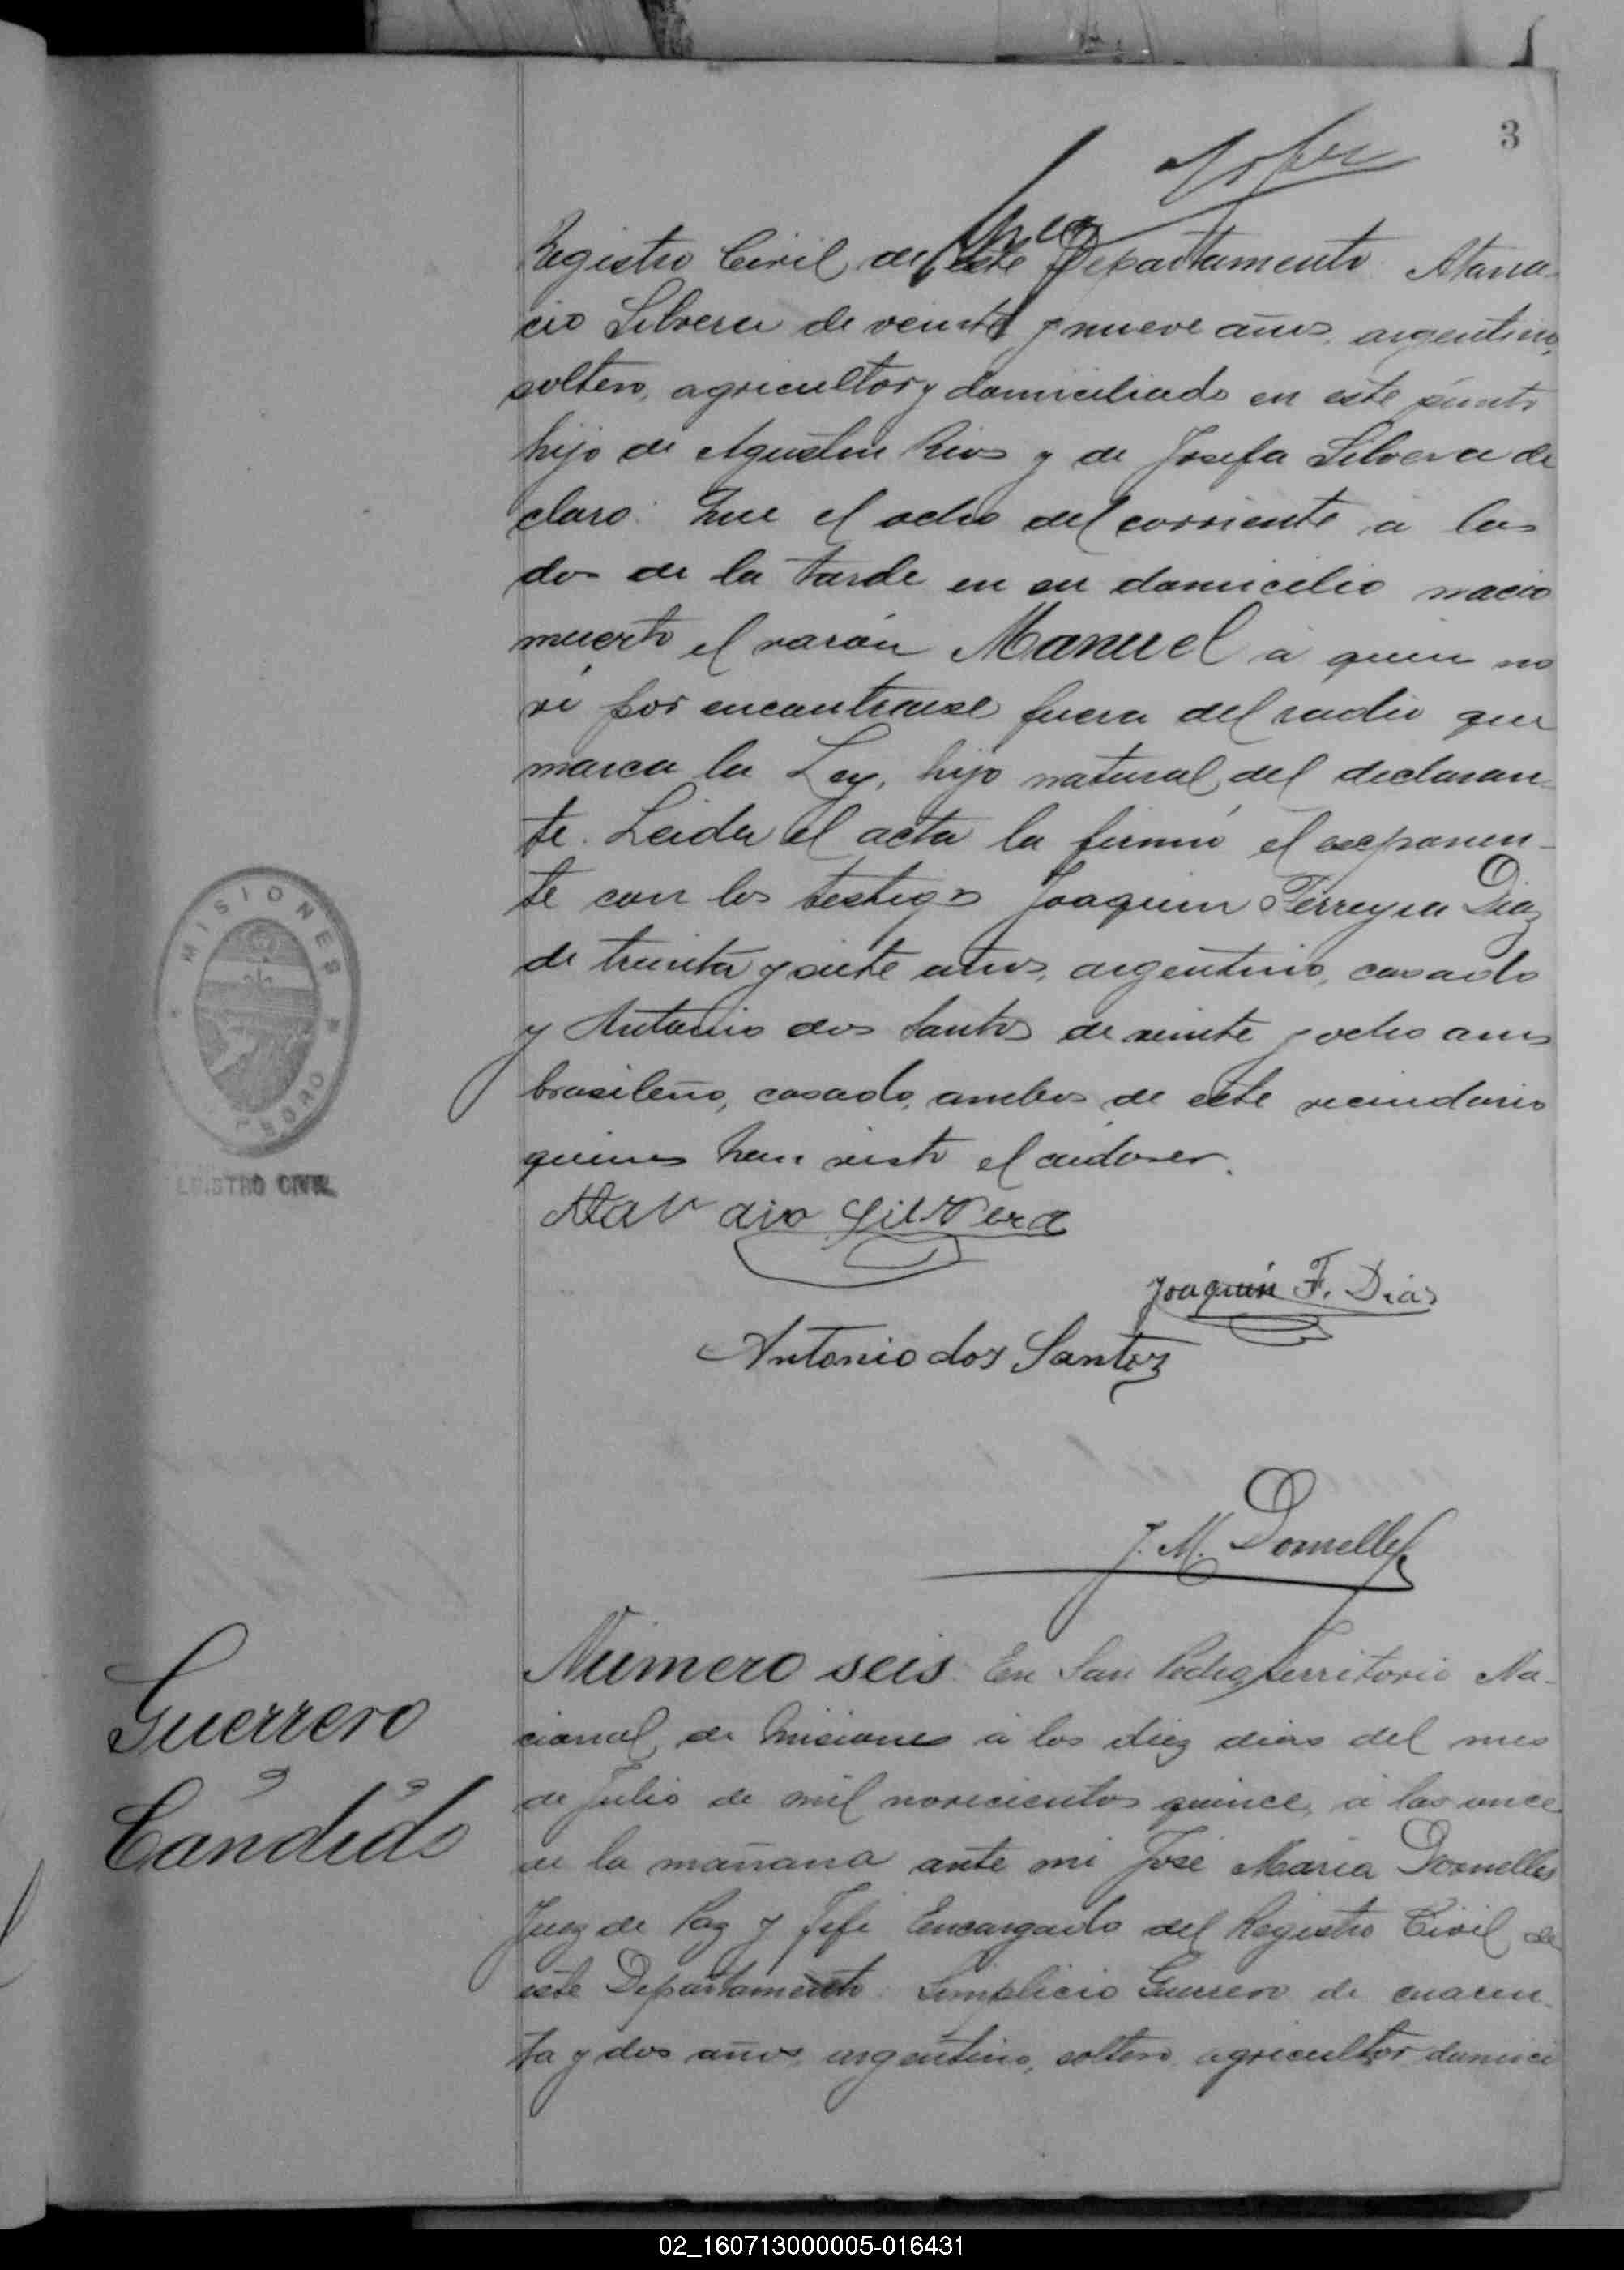 3
Registro Civil de este Departamento Atana-
cio Silvera de veinte y nueve años, argentino,
soltero, agricultor y domiciliado en este punto
hijo de Agustin Rios y de Josefa Silvera de
claro: Que el ocho del corriente á las
dos de la tarde en su domicilio nació
muerto el varón Manuel á quien no
ví por encontrarse fuera del radio que
marca la Ley, hijo natural del declaran-
te. Leida el acta la firmó el exponen-
te con los testigos Joaquin Ferreyra Diaz
de treinta y siete años, argentino, casado
y Antonio dos Santos de veinte y ocho años
brasileño, casado, ambos de este vecindario
quienes han visto el cadaver.
MISIONES
PEDRO
REGISTRO CIVIL
Silvera
Joaquin F. Dias
Antonio dos Santos
J. M. Dornelles
Guerrero
Candido
Número seis En San Pedro, Territorio Na-
cional de Misiones á los diez dias del mes
de Julio de mil novecientos quince, á las once
de la mañana ante mi José Maria Dornelles
Juez de Paz y Jefe Encargado del Registro Civil de
este Departamento: Simplicio Guerrero de cuaren-
ta y dos años, argentino, soltero, agricultor domici
02_160713000005-016431